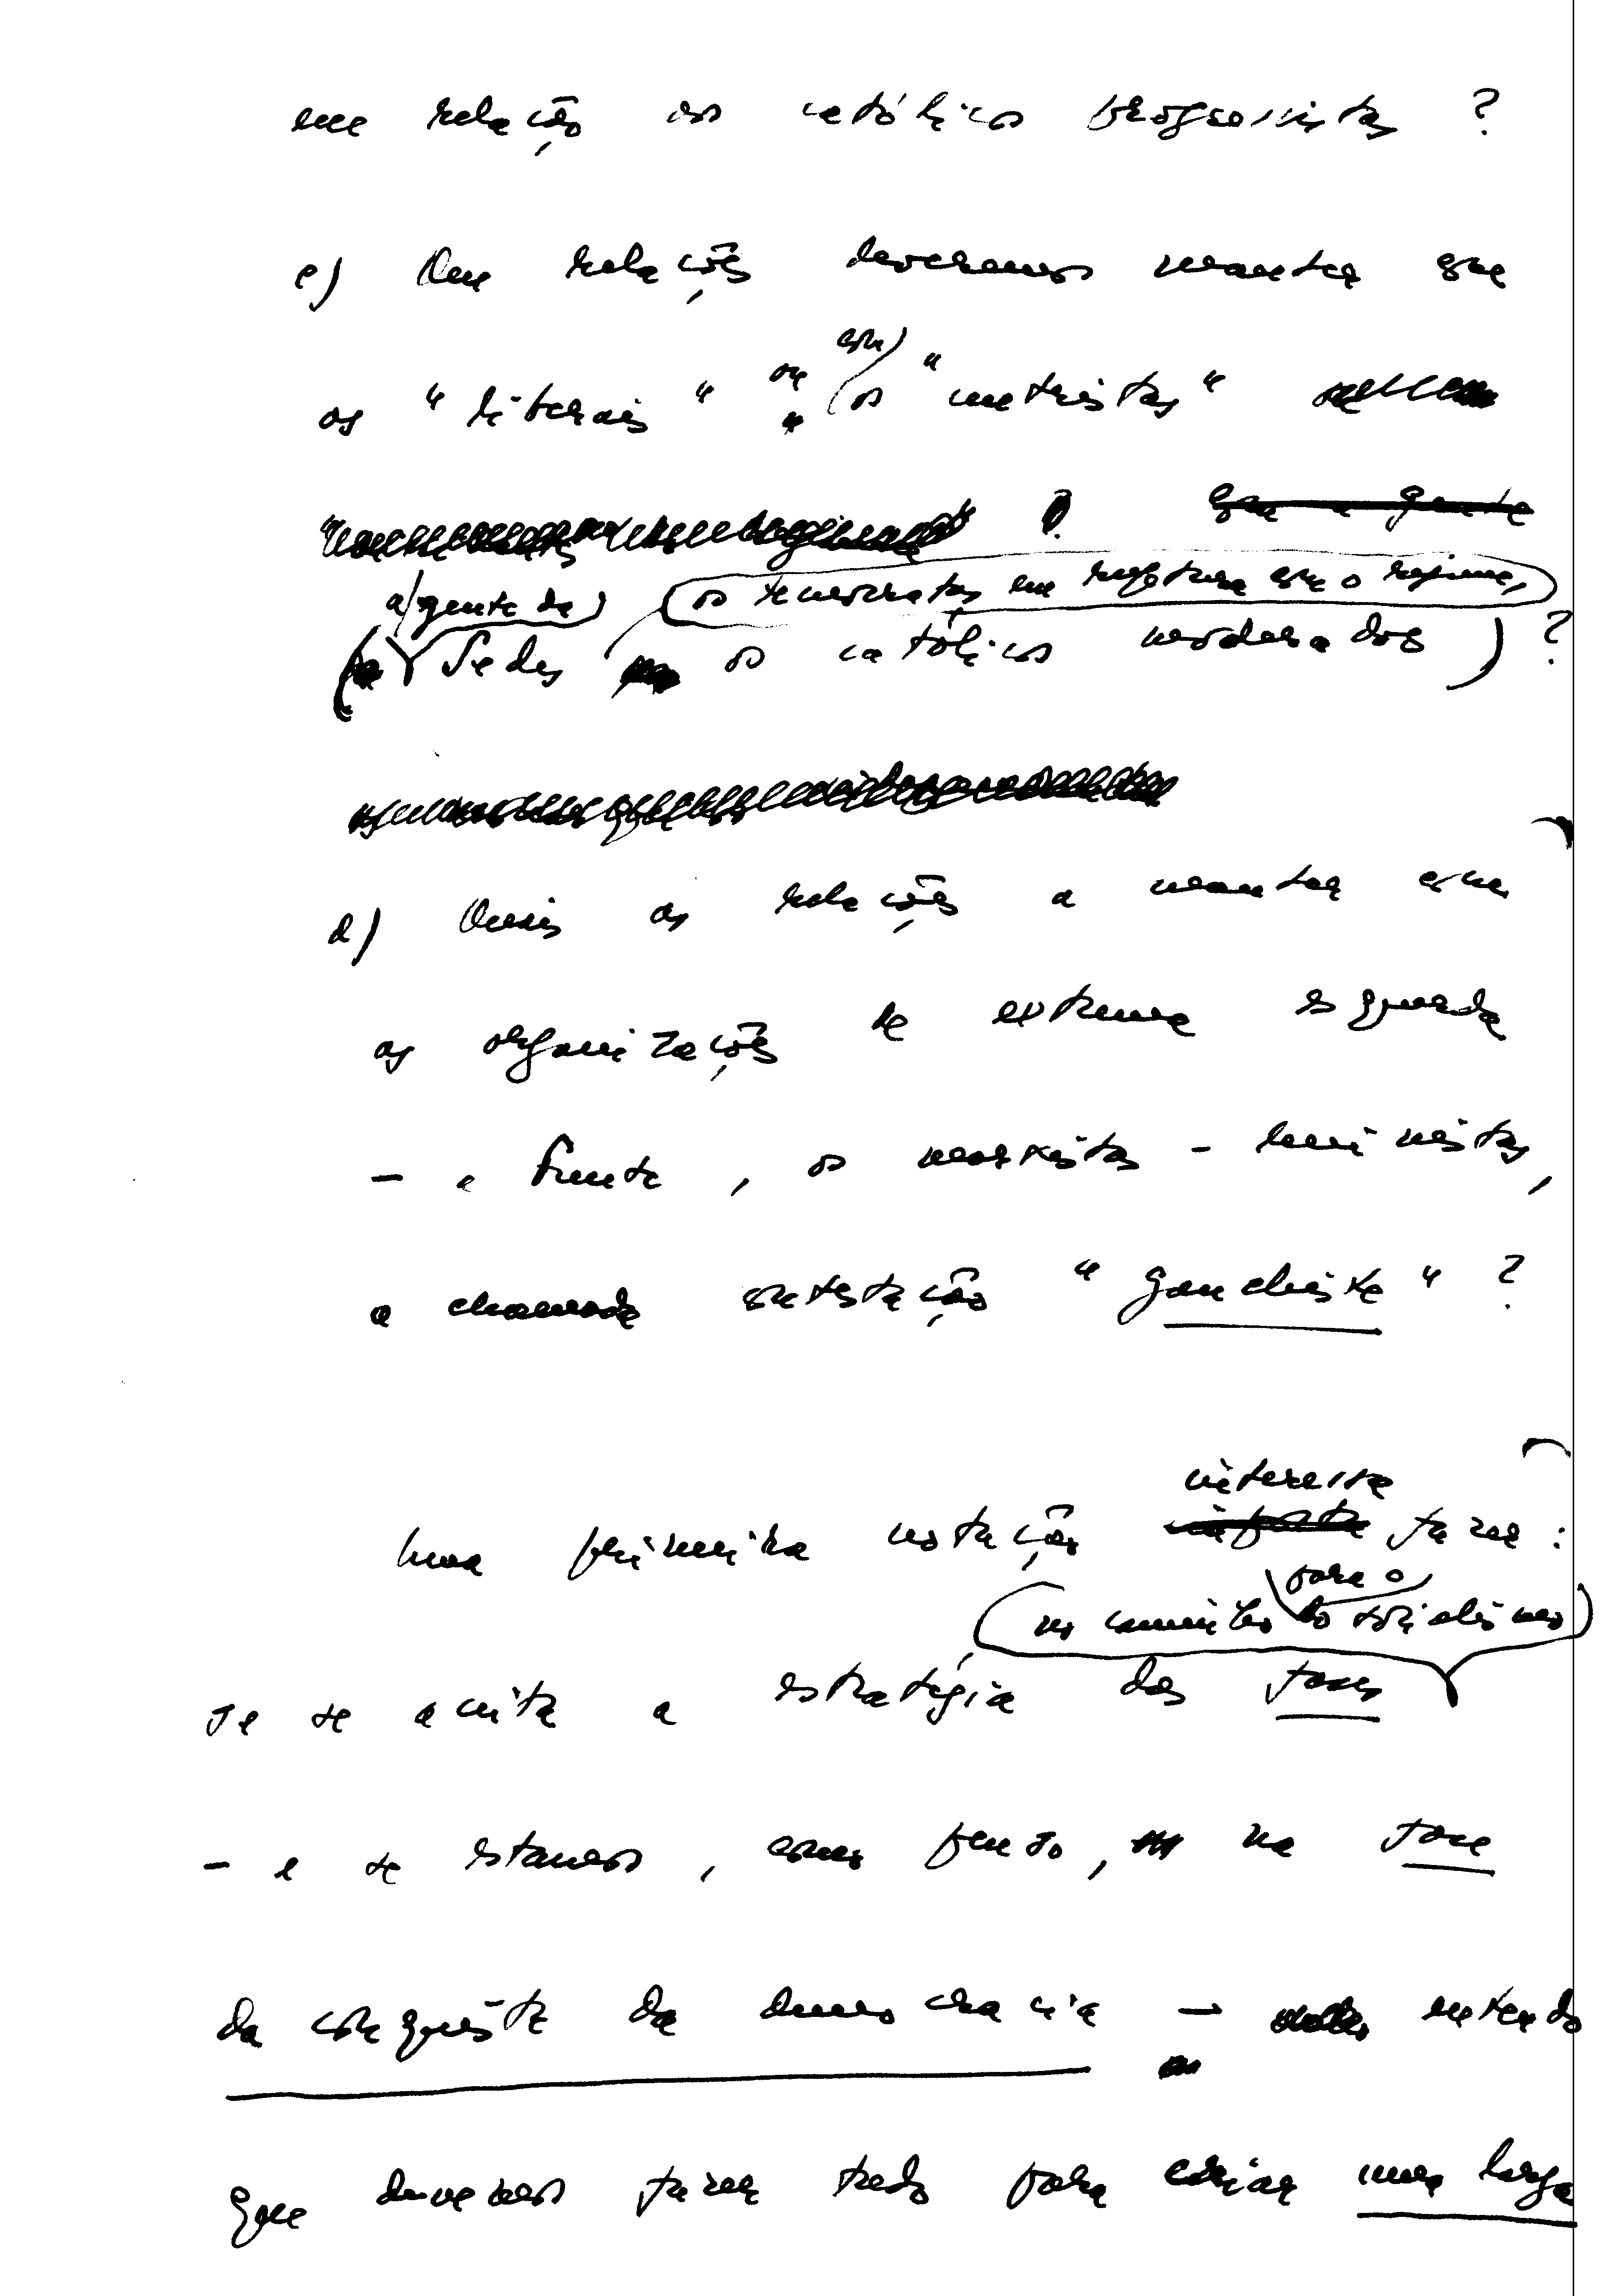 em relação aos católicos progressistas ?
c) Que relações deveremos manter com
os "liberais" ou (com) os "metristas"
?
a gente da Sedes, os tecnocratas em ruptura com o regime,
os católicos moderados) ?
d) Quais as relações a manter com
as organizações de extrema esquerda
- a Frente, os marxistas-leninistas,
a chamada contestação "gauchiste" ?
Uma primeira notação interessa fazer :
se se aceita a estratégia das fases
(no caminho para o socialismo)
- e se estamos, como penso, na fase
da conquista da democracia - entendo
que devemos fazer tudo para criar uma larga